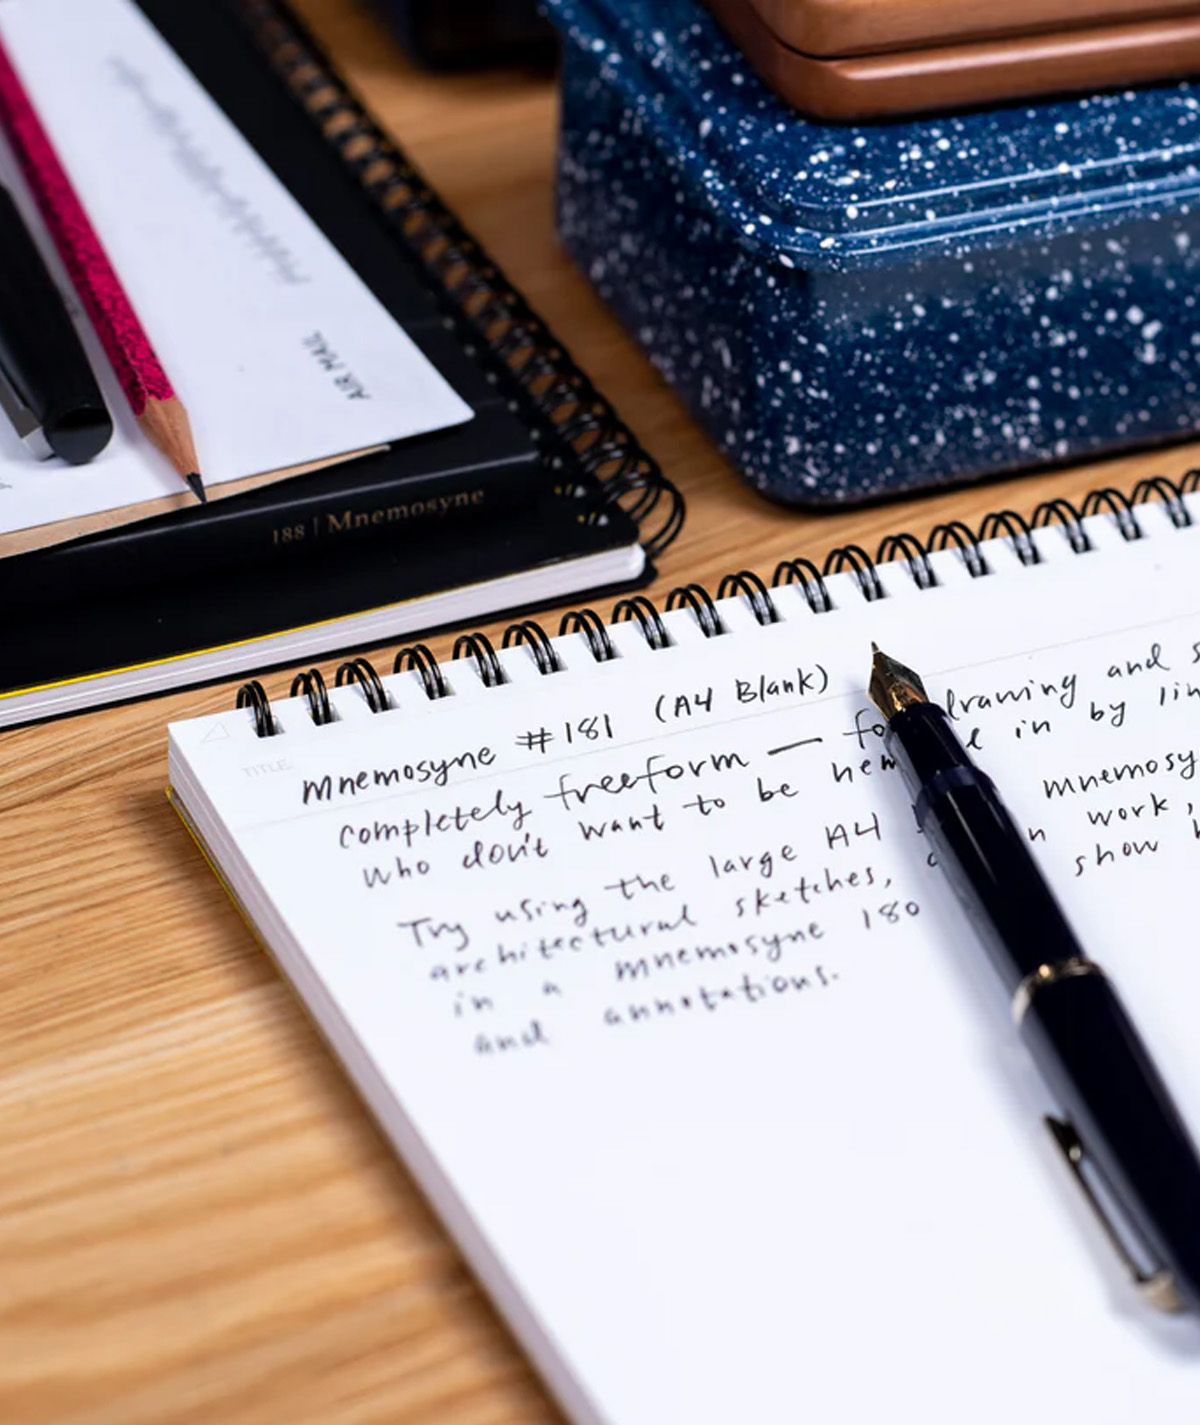 AIR MAIL
188 | Mnemosyne
TITLE
Mnemosyne #181 (A4 Blank)
completely freeform — drawing and
who don't want to be in by
Try using the large A4 mnemosy
architectural sketches, work,
in a mnemosyne 180 show
and annotations.